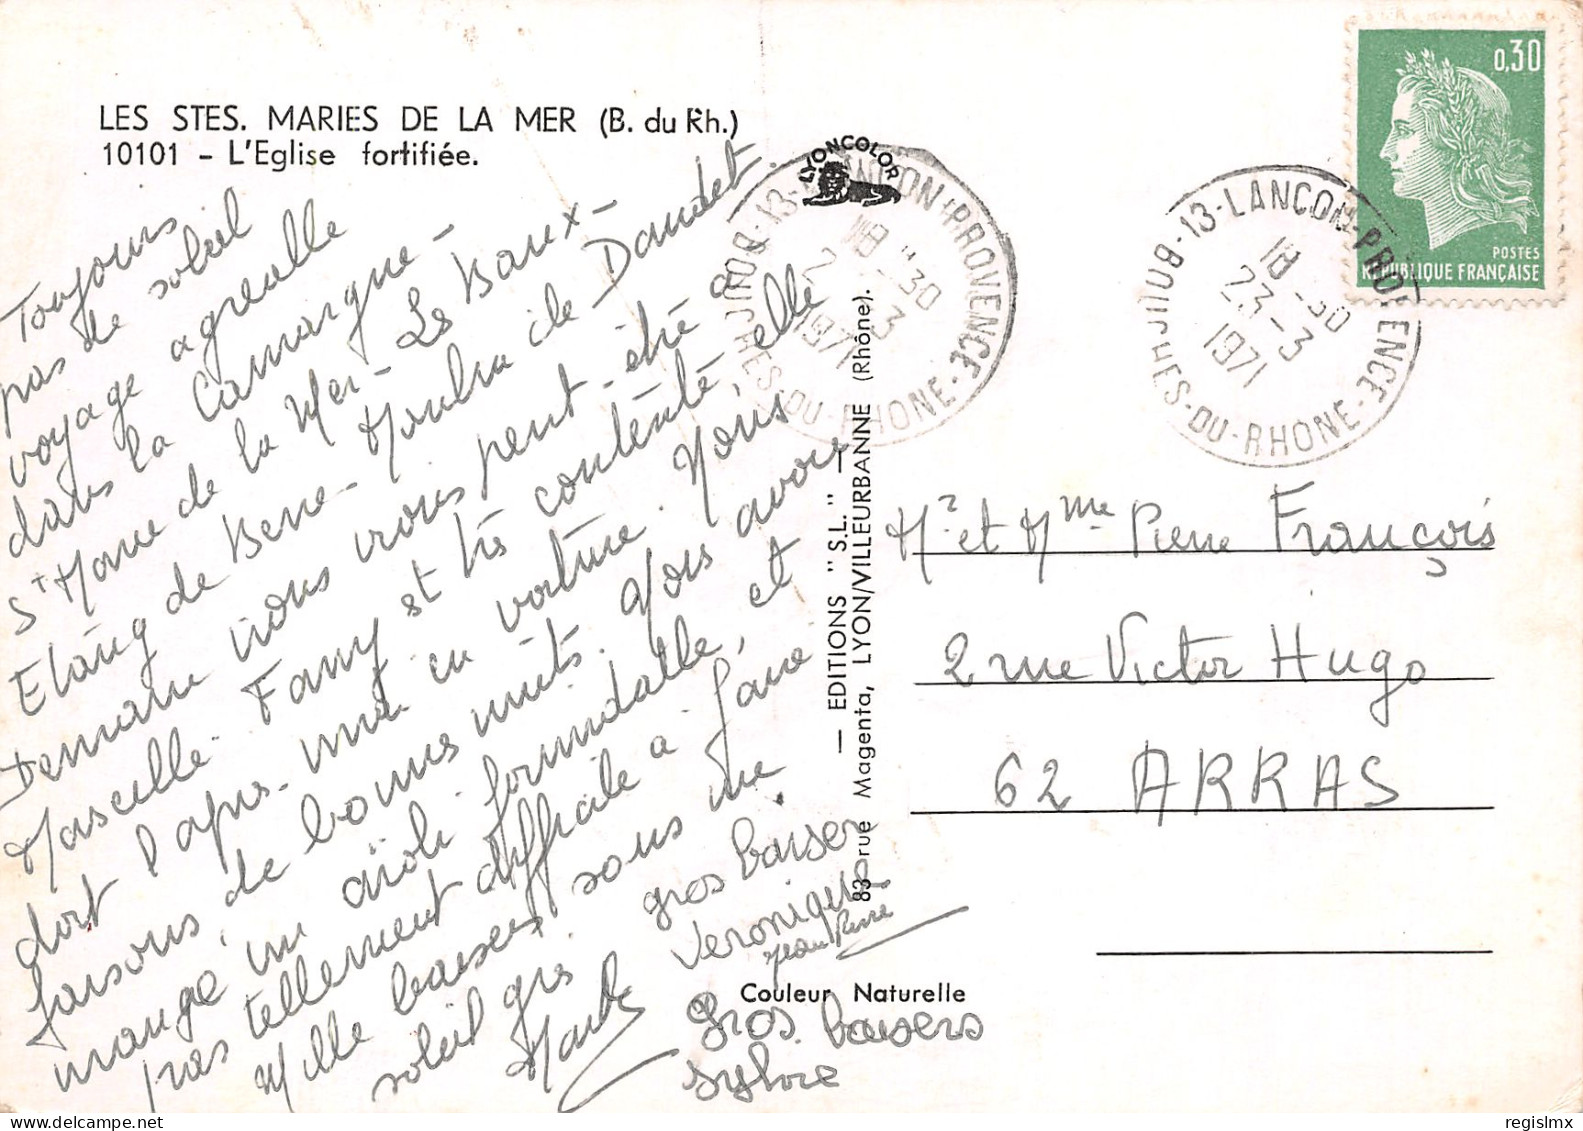 LES STES. MARIES DE LA MER (B. du Rh.)
10101 - L'Eglise fortifiée.
Toujours
pas de soleil
voyage agréable
dans la Camargue -
St Marie de la Mer - Les Baux -
Etang de Berre - Moulin de Daudet.
Demain nous irons peut-être à
Marseille. Fany est très contente, elle
dort l'après-midi en voiture. Nous
faisons de bonnes nuits. Nous avons
mangé un aïoli formidable, et
pas tellement difficile à faire
Mille baisers sous un
soleil gris.
gros baiser
Veronique
Jean Pierre
Gros baisers
Sylvie
LYONCOLOR
— EDITIONS "S.L." —
83 rue Magenta, LYON/VILLEURBANNE (Rhône).
Couleur Naturelle
13-LANCON-PROVENCE
BOUCHES-DU-RHONE
18-30
23-3
1971
13-LANCON-PROVENCE
BOUCHES-DU-RHONE
18-30
23-3
1971
0,30
POSTES
REPUBLIQUE FRANÇAISE
Mr et Mme Pierre François
2 rue Victor Hugo
62 ARRAS
regislmx